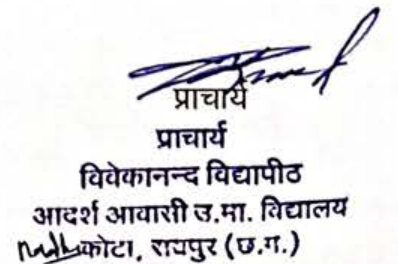 प्राचार्य
प्राचार्य
विवेकानन्द विद्यापीठ
आदर्श आवासी उ.मा. विद्यालय
कोटा, रायपुर (छ.ग.)